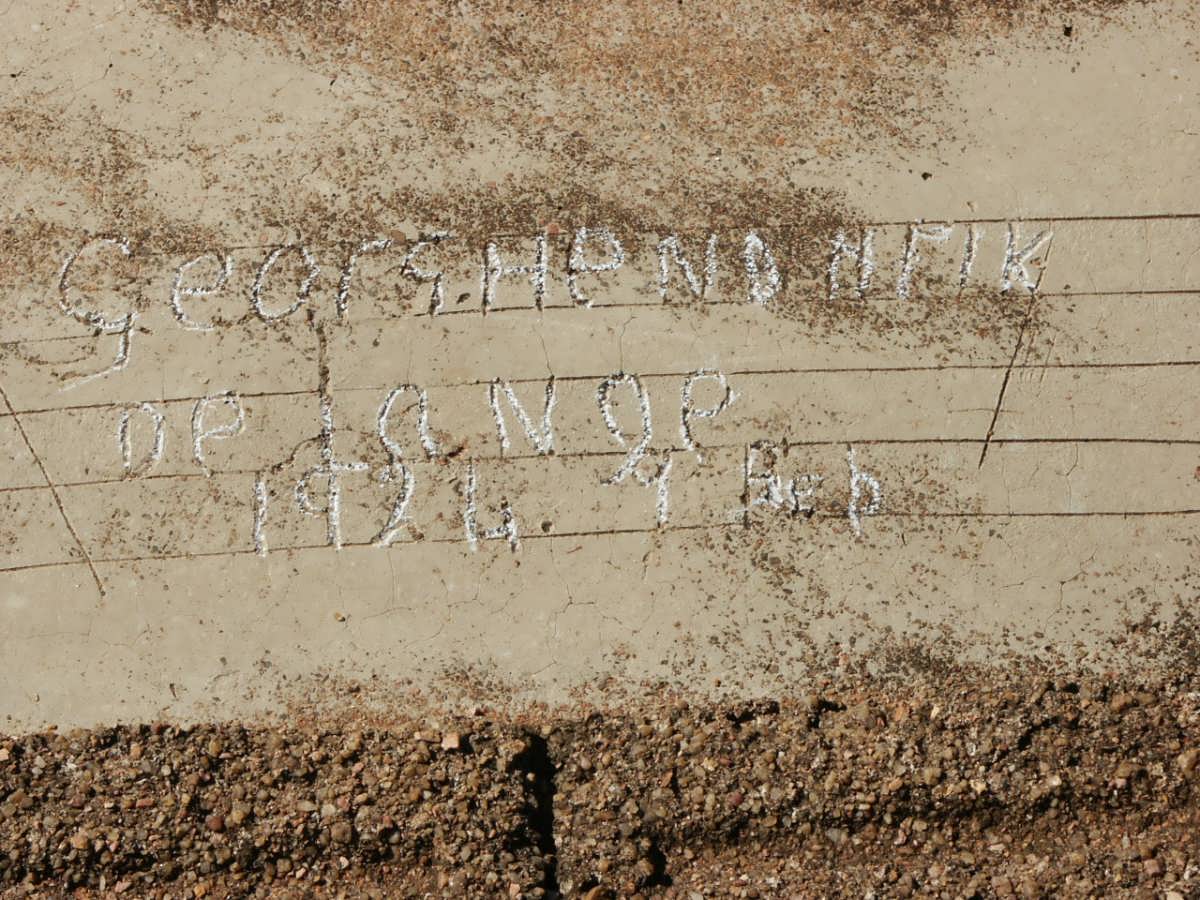 Georg HeNDRrik
De laNge
1924 9 Feb